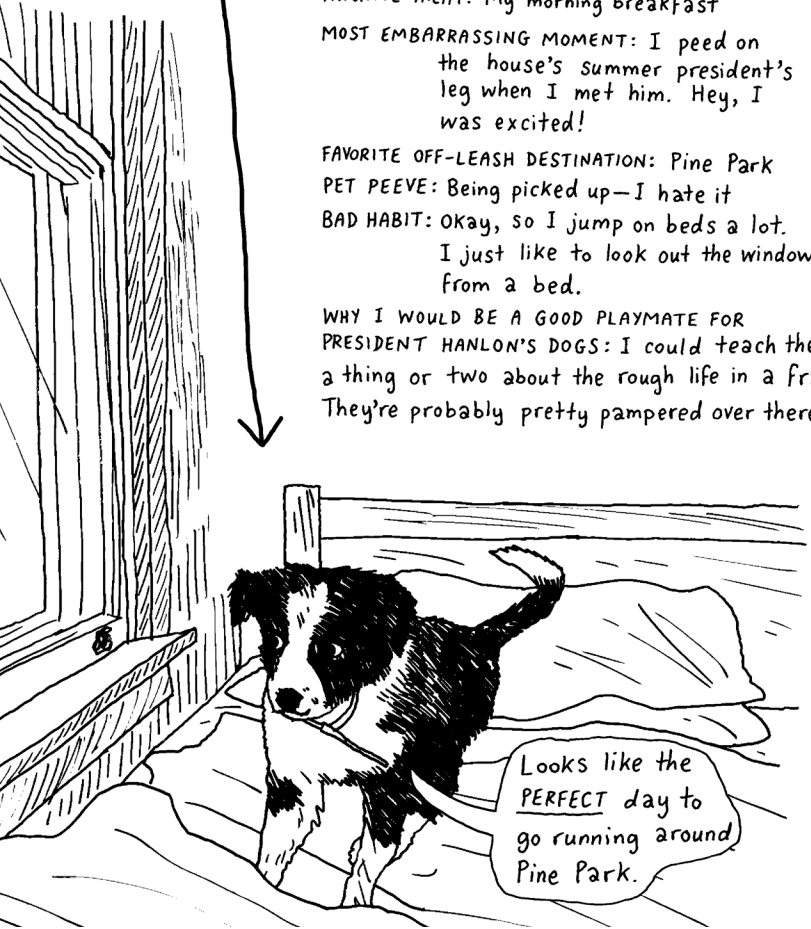 My morning breakfast
MOST EMBARRASSING MOMENT: I peed on
the house's summer president's
leg when I met him. Hey, I
was excited!
FAVORITE OFF-LEASH DESTINATION: Pine Park
PET PEEVE: Being picked up—I hate it
BAD HABIT: Okay, so I jump on beds a lot.
I just like to look out the window
from a bed.
WHY I WOULD BE A GOOD PLAYMATE FOR
PRESIDENT HANLON'S DOGS: I could teach the
a thing or two about the rough life in a fr
They're probably pretty pampered over there
Looks like the
PERFECT day to
go running around
Pine Park.